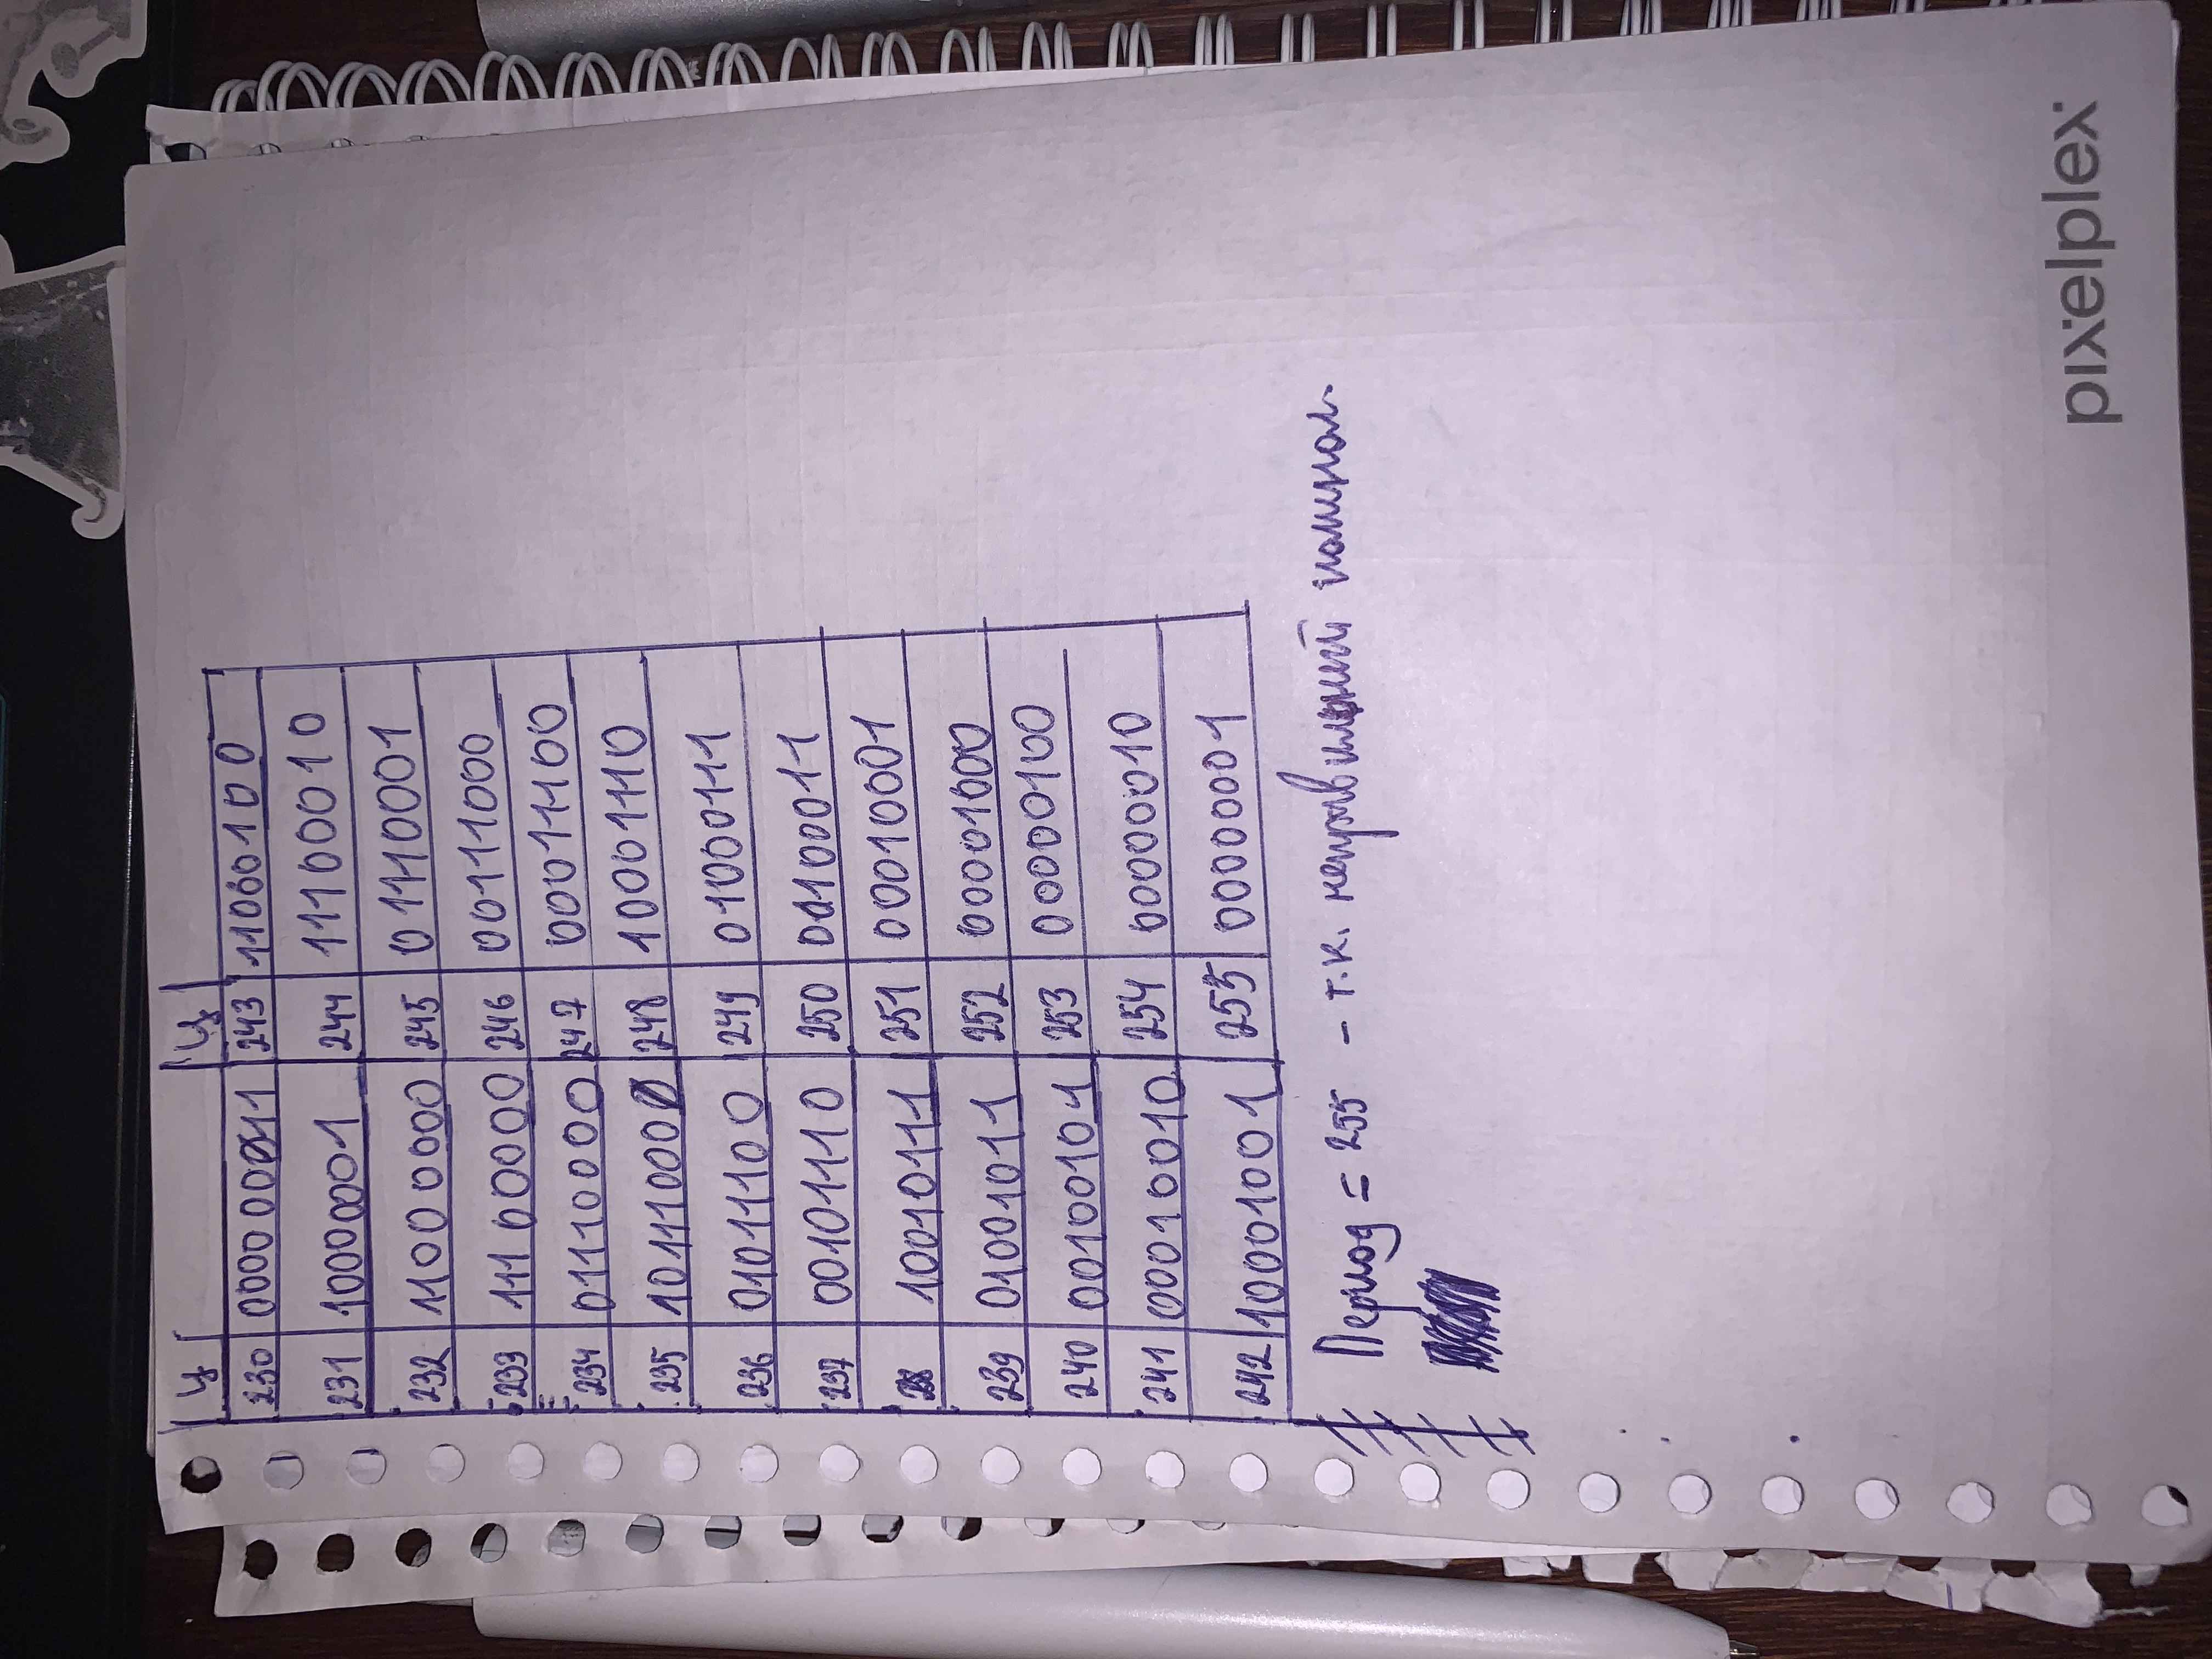 Ц Ц
230 00000011 243 11000100
231 10000001 244 11100010
232 11000000 245 01110001
233 11100000 246 00111000
234 01110000 247 00011100
235 10111000 248 10001110
236 01011100 249 01000111
237 00101110 250 00100011
238 10010111 251 00010001
239 01001011 252 00001000
240 00100101 253 00000100
241 00010010 254 00000010
242 10001001 255 00000001
Период = 255 - т.к. неправильный полином.
pixelplex